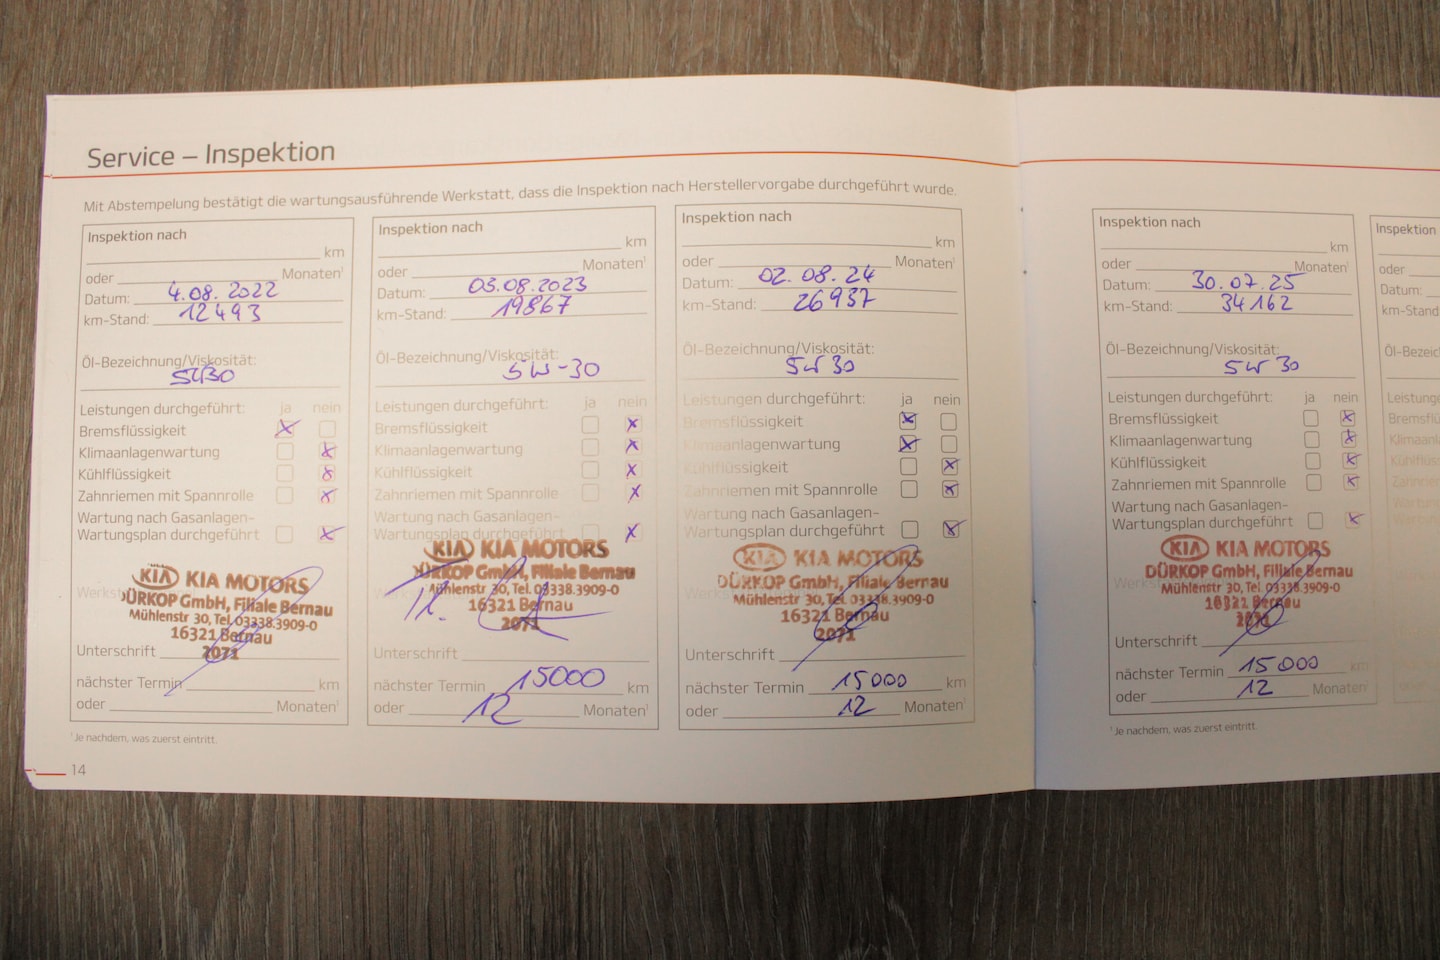 Service – Inspektion
Mit Abstempelung bestätigt die wartungsausführende Werkstatt, dass die Inspektion nach Herstellervorgabe durchgeführt wurde.
Inspektion nach
km
oder Monaten¹
Datum: 4.08.2022
km-Stand: 12493
Öl-Bezeichnung/Viskosität:
5W30
Leistungen durchgeführt: ja nein
Bremsflüssigkeit
Klimaanlagenwartung
Kühlflüssigkeit
Zahnriemen mit Spannrolle
Wartung nach Gasanlagen-
Wartungsplan durchgeführt
KIA KIA MOTORS
DÜRKOP GmbH, Filiale Bernau
Mühlenstr 30, Tel. 03338.3909-0
16321 Bernau
2071
Unterschrift
nächster Termin km
oder Monaten¹
¹Je nachdem, was zuerst eintritt.
14
Inspektion nach
km
oder Monaten¹
Datum: 03.08.2023
km-Stand: 19867
Öl-Bezeichnung/Viskosität:
5W-30
Leistungen durchgeführt: ja nein
Bremsflüssigkeit
Klimaanlagenwartung
Kühlflüssigkeit
Zahnriemen mit Spannrolle
Wartung nach Gasanlagen-
Wartungsplan durchgeführt
KIA KIA MOTORS
DÜRKOP GmbH, Filiale Bernau
Mühlenstr 30, Tel. 03338.3909-0
16321 Bernau
2071
Unterschrift
nächster Termin 15000 km
oder 12 Monaten¹
Inspektion nach
km
oder Monaten¹
Datum: 02.08.24
km-Stand: 26937
Öl-Bezeichnung/Viskosität:
5W30
Leistungen durchgeführt: ja nein
Bremsflüssigkeit
Klimaanlagenwartung
Kühlflüssigkeit
Zahnriemen mit Spannrolle
Wartung nach Gasanlagen-
Wartungsplan durchgeführt
KIA KIA MOTORS
DÜRKOP GmbH, Filiale Bernau
Mühlenstr 30, Tel. 03338.3909-0
16321 Bernau
2071
Unterschrift
nächster Termin 15000 km
oder 12 Monaten¹
Inspektion nach
km
oder Monaten¹
Datum: 30.07.25
km-Stand: 34162
Öl-Bezeichnung/Viskosität:
5W30
Leistungen durchgeführt: ja nein
Bremsflüssigkeit
Klimaanlagenwartung
Kühlflüssigkeit
Zahnriemen mit Spannrolle
Wartung nach Gasanlagen-
Wartungsplan durchgeführt
KIA KIA MOTORS
DÜRKOP GmbH, Filiale Bernau
Mühlenstr 30, Tel. 03338.3909-0
16321 Bernau
2071
Unterschrift
nächster Termin 15000 km
oder 12 Monaten¹
¹Je nachdem, was zuerst eintritt.
Inspektion
oder
Datum:
km-Stand